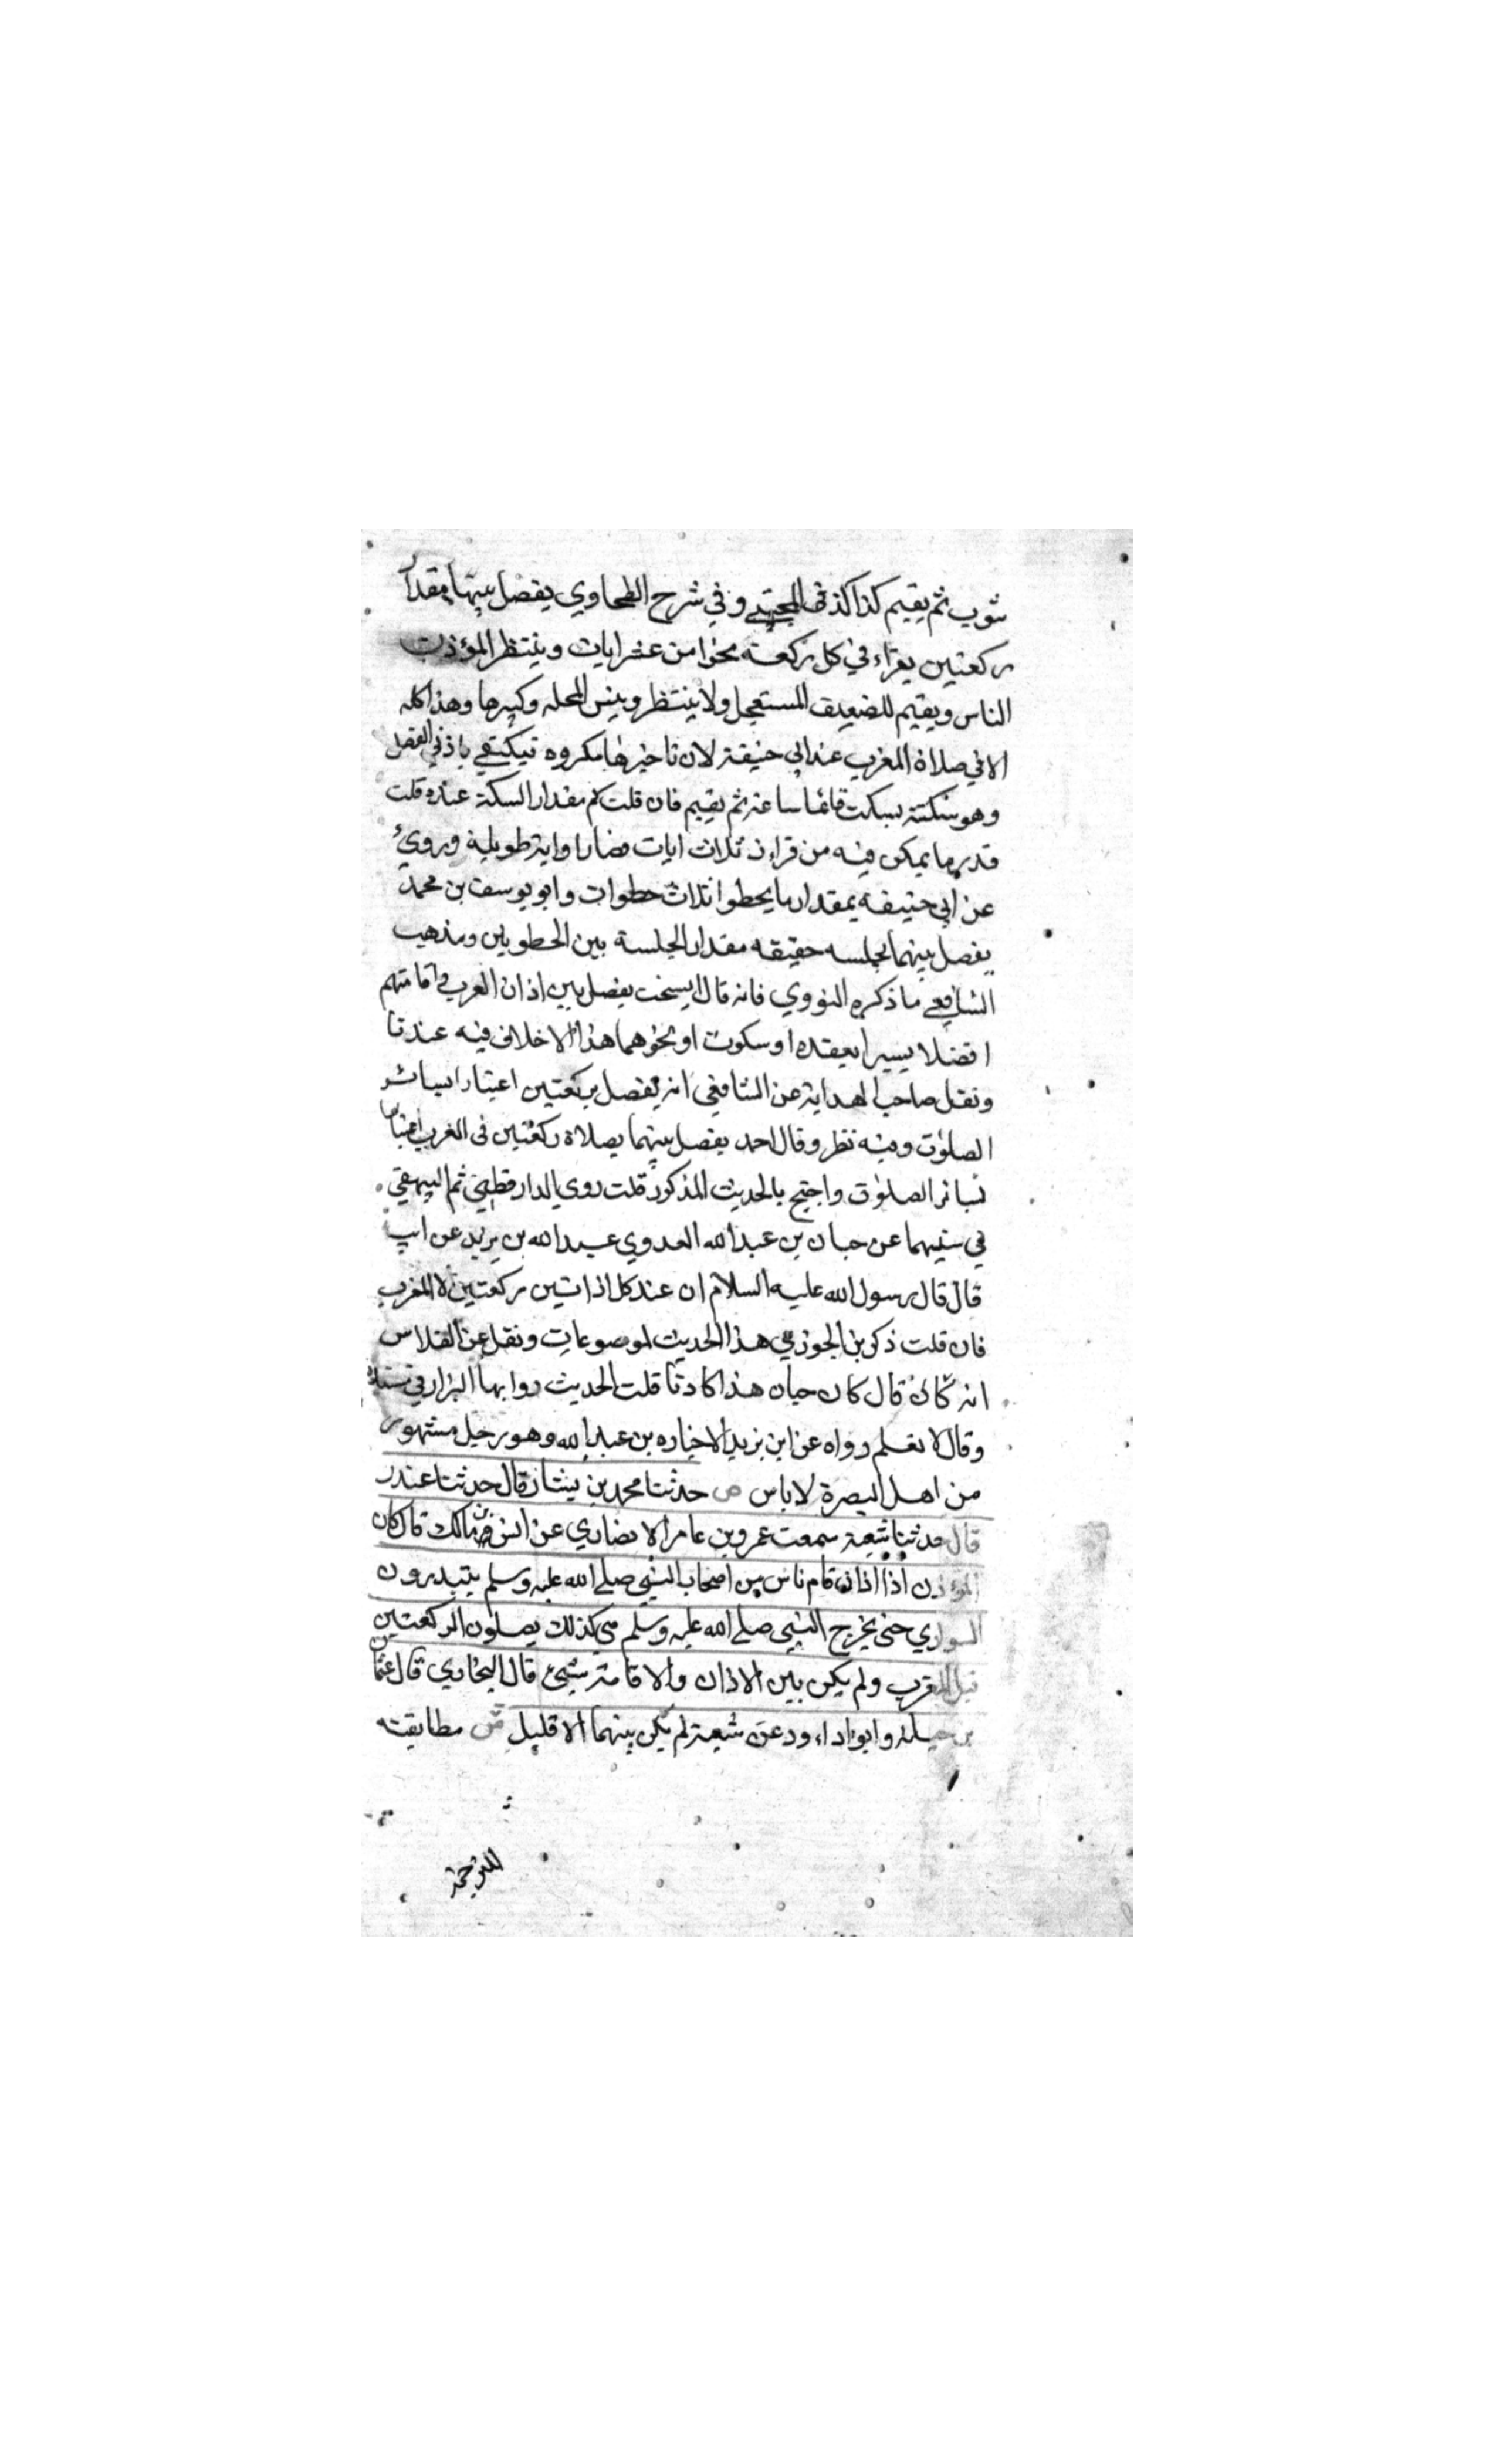 يثوب ثم يقيم كذا كذا في المجتبي وفي شرح الطحاوي يفصل بينهما مقدار
ركعتين يقراء في كل ركعة نحوا من عشر ايات وينتظر المؤذن
الناس ويقيم للضعيف المستعجل ولا ينتظر وبنس المحله وكبيرها وهذا كله
الا في صلاة المغرب عند ابي حنيفة لان تاخيرها مكروه فيكتفي باذني الفصل
وهو سكتة يسكت قائما ساعة ثم يقيم فان قلت كم مقدار السكتة عنده قلت
قدر ما يمكن فيه من قراءة ثلاث ايات قصارا واية طويلة وروي
عن ابي حنيفه بمقدار ما يخطوا ثلاث خطوات وابو يوسف بن محمد
يفصل بينهما بجلسه حقيقه مقدار الجلسة بين الخطوبين ومذهب
الشافعي ما ذكره النووي فانه قال يستحب يفصل بين اذان المغرب واقامتهم
افضلا يسيرا بعقده او سكوت او نحوهما هذا الاخلاف فيه عندنا
ونقل صاحب الهداية عن الشافعي انه يفصل بركعتين اعتبار ابسائر
الصلوت وفيه نظر وقال احمد يفصل بينهما بصلاة ركعتين في المغرب اعتبارا
بسائر الصلوت واحتج بالحديث المذكور قلت روي الدارقطني ثم البيهقي
في سننهما عن حبان بن عبد الله العدوي عبد الله بن بريد عن ابيه
قال قال رسول الله عليه السلام ان عند كل اذانين ركعتين الا المغرب
فان قلت ذكر بن الجوزي هذا الحديث الموضوعات ونقل عن الفلاس
انه كان قال كان حيان هذا كاذبا قلت الحديث روابها البزار في مسنده
وقال لا نعلم رواه عن ابن بريد الا خياره بن عبد الله وهو رجل مشهور
من اهل البصرة لا باس ص حدثنا محمد بن بشار قال حدثنا غندر
قال حدثنا شعبة سمعت عمرو بن عامر الانصاري عن انس بن مالك قال كان
المؤذن اذا اذن قام ناس من اصحاب النبي صلى الله عليه وسلم يبتدرون
السواري حتى يخرج النبي صلى الله عليه وسلم وهي كذلك يصلون الركعتين
قبل المغرب ولم يكن بين الاذان والاقامة شيئ قال البخاري قال عثمان
بن جبلة وابو داء ود عن شعبة لم يكن بينهما الا قليل ش مطابقته
للترجمة